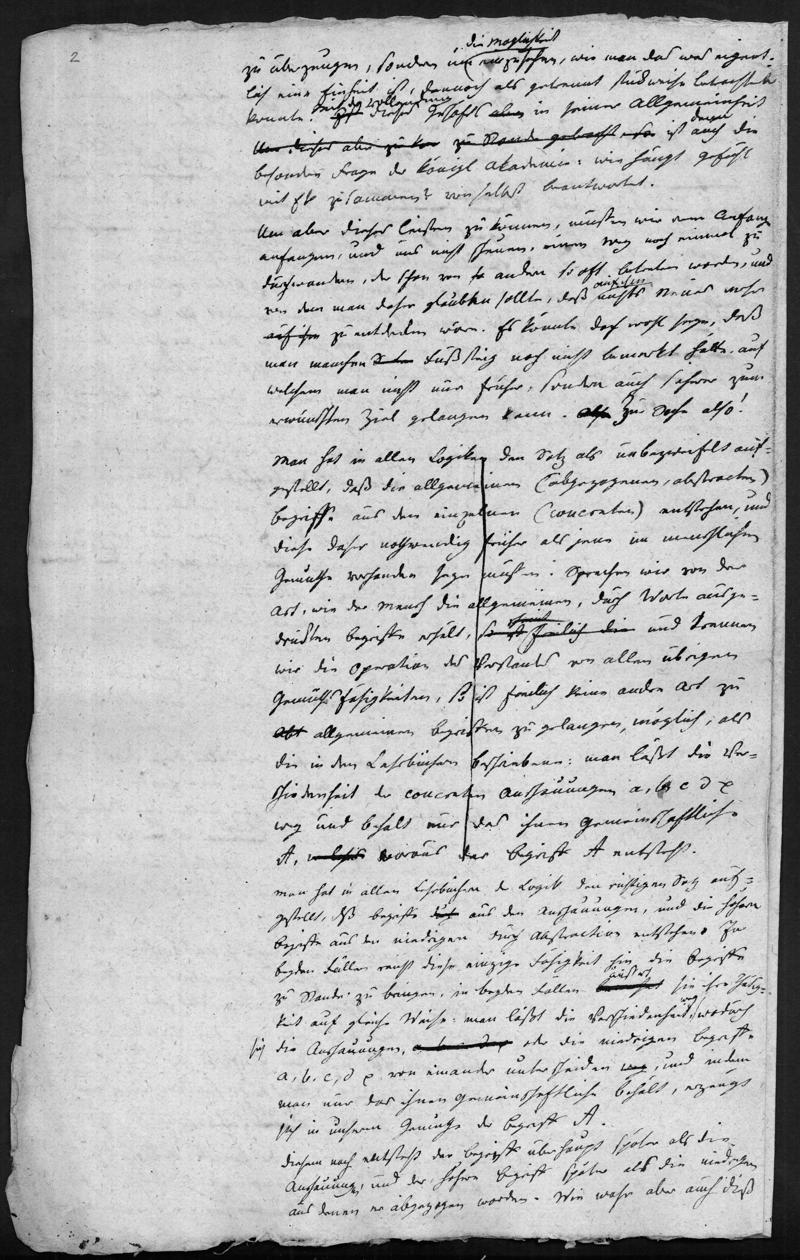 2
die Möglichkeit
zu überzeugen, sondern nur einzusehen, wie man das was eigent-
lich eine Einheit ist, dennoch als getrennt stückweise betrachten
konnte. Ist dieses Geschäft aber in seiner Allgemeinheit
zu Stande gebracht so ist auch die
besondere Frage der königl Akademie: wie hängt Gefühl
mit zusammen? von selbst beantwortet.
Um aber dieses leisten zu können, müssen wir vom Anfang
anfangen, und uns nicht scheuen, einen Weg noch einmal zu
durchwandern, der schon von andern so oft betreten worden, und
von dem man daher glauben sollte, daß nichts Neues mehr
auf ihm zu entdecken wäre. Es könnte doch wohl seyn, daß
man manchen Fußsteig noch nicht bemerkt hätte, auf
welchem man nicht nur früher, sondern auch sicherer zum
erwünschten Ziel gelangen kann. Also Zur Sache also!
Man hat in allen Logiken den Satz als unbezweifelt auf-
gestellt, daß die allgemeinen (abgezogenen, abstracten)
Begriffe aus den einzelnen (concreten) entstehen, und
diese daher nothwendig früher als jene im menschlichen
Gemüthe vorhanden seyn müssen. Sprechen wir von der
Art, wie der Mensch die allgemeinen, durch Worte ausge-
drückten Begriffe erhält, so ist freilich die und trennen
wir die Operation des Verstandes von allen übrigen
Gemüthsfähigkeiten, so ist freilich keine andre Art zu
allgemeinen Begriffen zu gelangen, möglich, als
die in den Lehrbüchern beschriebene: man läßt die Ver-
schiedenheit der concreten Anschauungen a, b, c, d
weg und behält nur das ihnen gemeinschaftliche
A, woraus der Begriff A entsteht.
Man hat in allen Lehrbüchern der Logik den richtigen Satz auf-
gestellt, daß Begriffe aus den Anschauungen, und die höhern
Begriffe aus den niedrigen durch Abstraction entstehen. In
beyden Fällen reicht diese einzige Fähigkeit hin die Begriffe
zu Stande zu bringen, in beyden Fällen äußert sie ihre Thätig-
keit auf gleiche Weise: man läßt die Verschiedenheit weg, wodurch
sich die Anschauungen, oder die niedrigen Begriffe
a, b, c, d von einander unterscheiden, und indem
man nur das ihnen gemeinschaftliche behält, erzeugt
sich in unserm Gemüthe der Begriff A.
Diesem nach entsteht der Begriff überhaupt später als die
Anschauung, und der höhere Begriff später als die niedrigen
aus denen er abgezogen worden. Wie wahr aber auch dieß